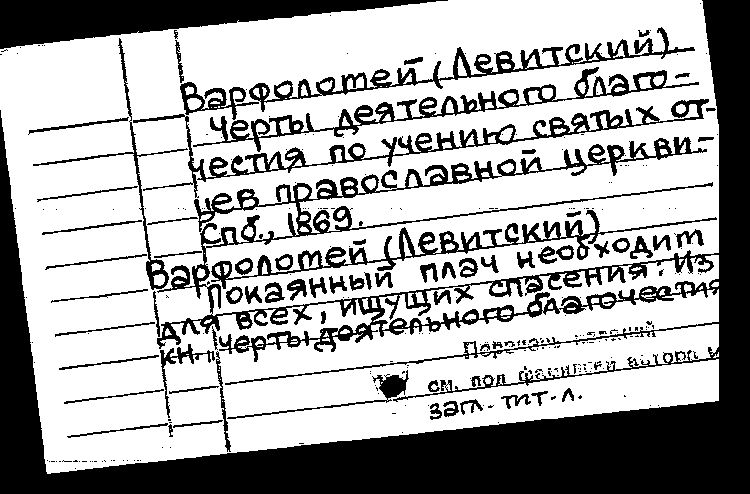 Варфоломей (Левитский).
Черты деятельного благо-
честия по учению святых от-
цев православной церкви.-
Спб., 1869.
Варфоломей (Левитский)
Покаянный плач необходим
для всех, ищущих спасения: Из
кн. "Черты деятельного благочестия
Перечень изданий
см. под фамилией автора и
загл. тит. л.